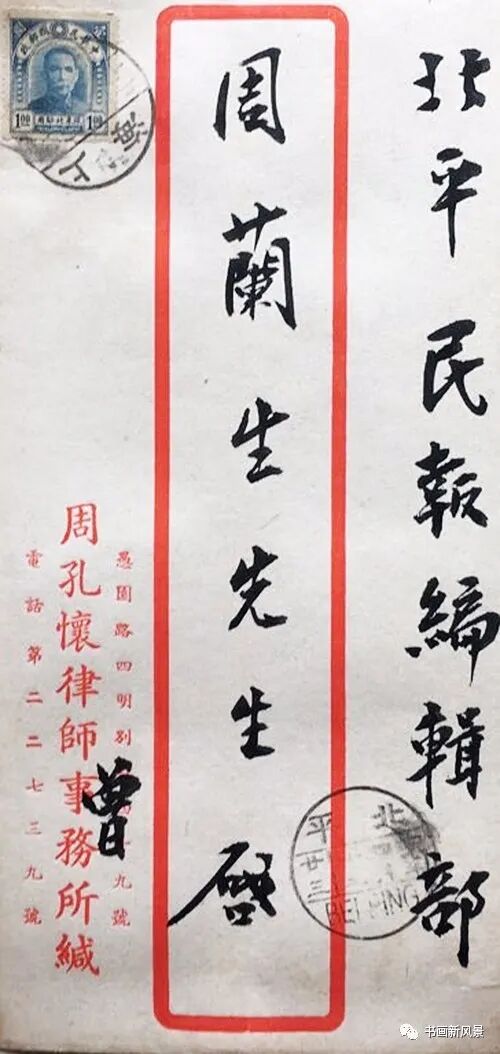 北平民報編輯部
周蘭生先生啓
愚園路四明別
九號
周孔懷律師事務所緘
電話第二二七三九號
曾
1.00
1.00
上海
北平
书画新风景